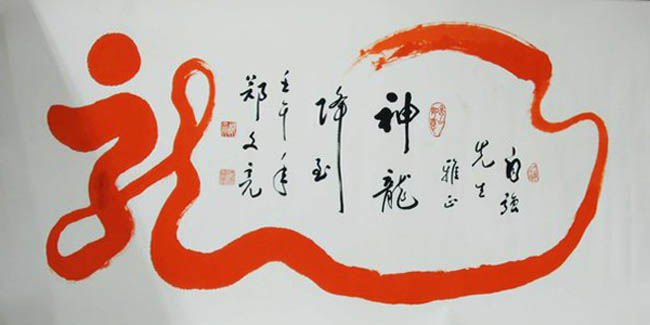 龙
自强
先生
雅正
神龍
降到
壬午年
郑文亮